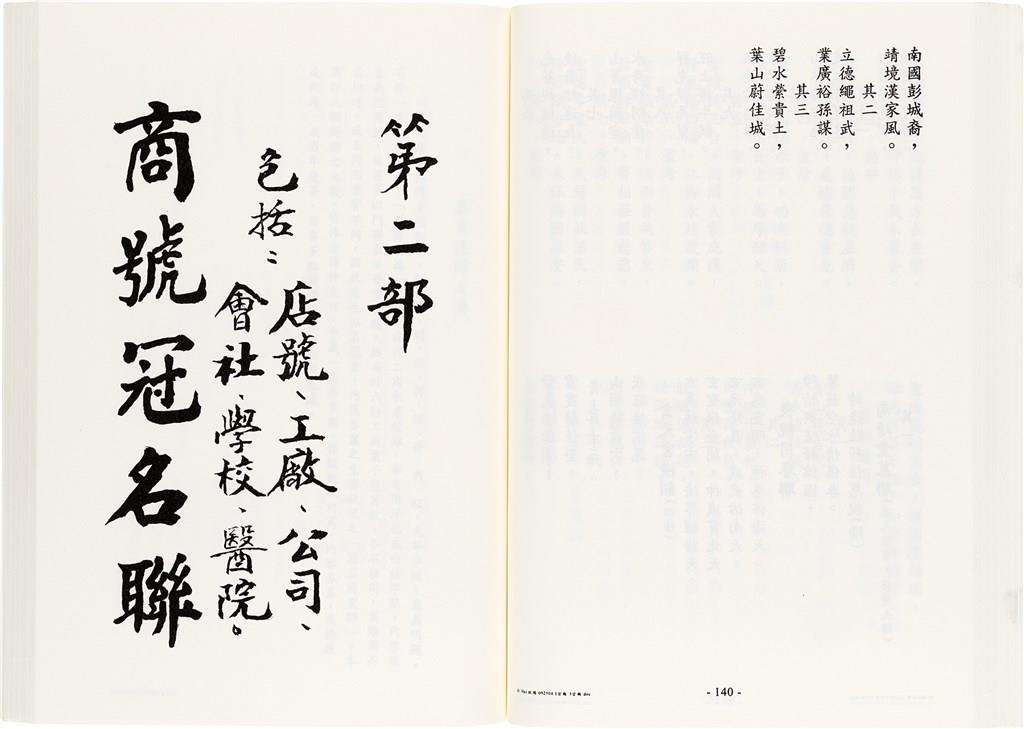 南國彭城裔，
靖境漢家風。
其二
立德繩祖武，
業廣裕孫謀。
其三
碧水縈貴土，
葉山蔚佳城。
- 140 -
第二部
包括：
店號、工廠、公司、
會社、學校、醫院。
商號冠名聯